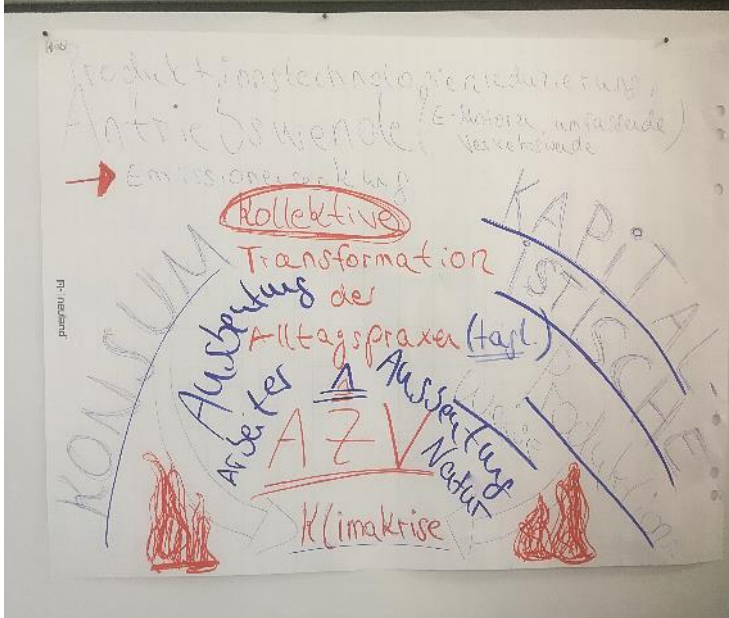 Produktionstechnologienreduzierung,
Antriebswende, (E-Motoren, umfassende
Verkehrswende)
→ Emissionssenkung
Kollektive
Transformation
der
Alltagspraxen (tägl.)
KONSUM
KAPITAL
ISTISCHE
Produktions
weise
Ausbeutung
Arbeiter
Aussbeutung
Natur
AZV
Klimakrise
neuland